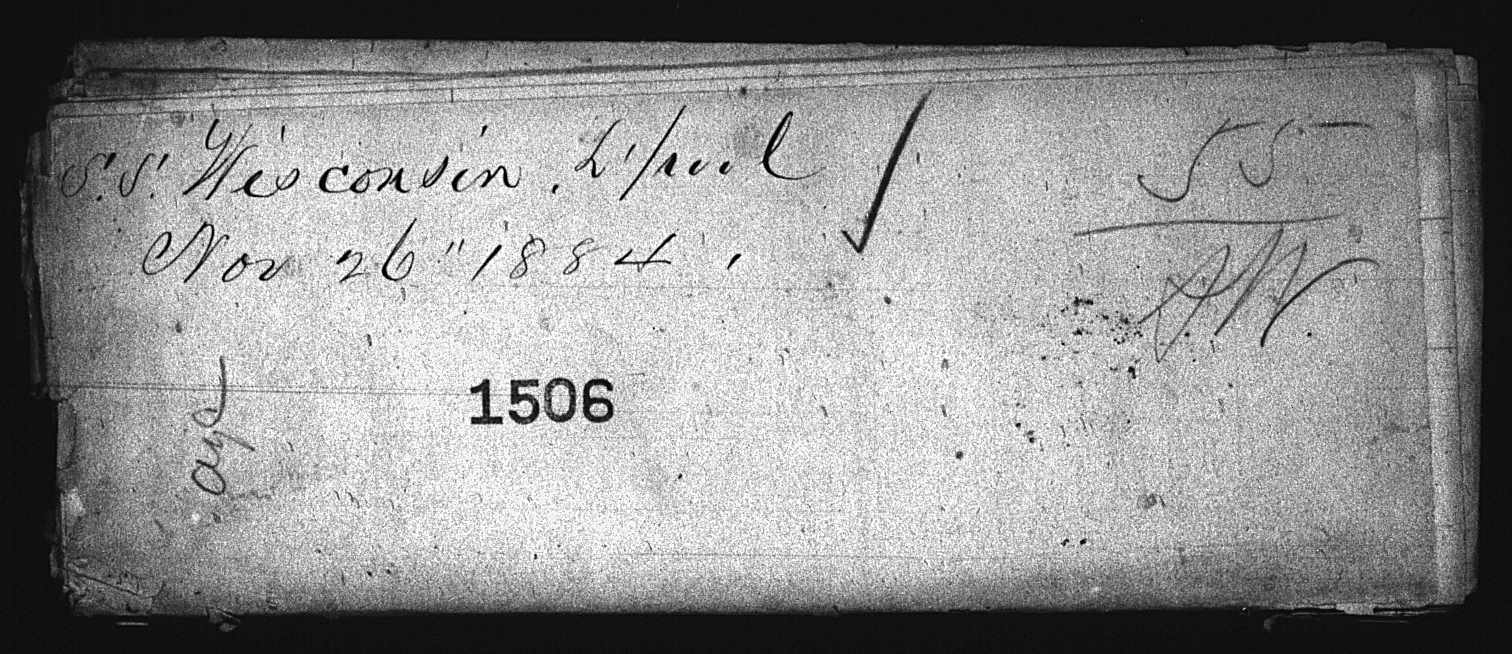 S.S. Wisconsin. L'pool
Nov 26" 1884.
55
1506